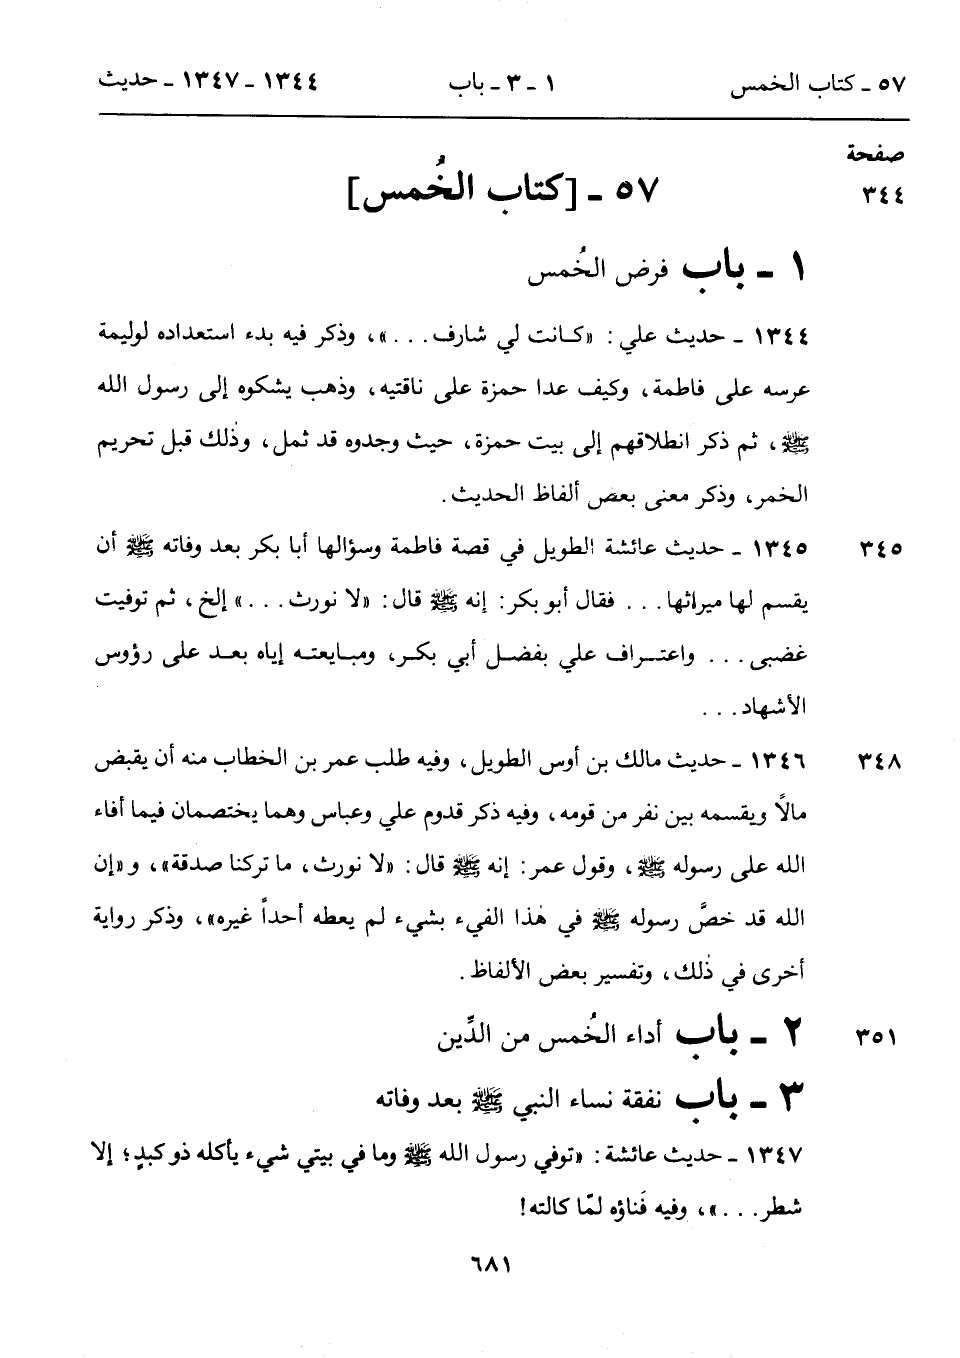 ٥٧ ـ كتاب الخمس ١ ـ ٣ ـ باب ١٣٤٤ ـ ١٣٤٧ ـ حديث
صفحة
٣٤٤ ٥٧ ـ [كتاب الخُمس]
١ ـ باب فرض الخُمس
١٣٤٤ ـ حديث علي: «كانت لي شارف...»، وذكر فيه بدء استعداده لوليمة
عرسه على فاطمة، وكيف عدا حمزة على ناقتيه، وذهب يشكوه إلى رسول الله
ﷺ، ثم ذكر انطلاقهم إلى بيت حمزة، حيث وجدوه قد ثمل، وذٰلك قبل تحريم
الخمر، وذكر معنى بعض ألفاظ الحديث.
٣٤٥ ١٣٤٥ ـ حديث عائشة الطويل في قصة فاطمة وسؤالها أبا بكر بعد وفاته ﷺ أن
يقسم لها ميراثها... فقال أبو بكر: إنه ﷺ قال: «لا نورث...» إلخ، ثم توفيت
غضبى... واعتراف علي بفضل أبي بكر، ومبايعته إياه بعد على رؤوس
الأشهاد...
٣٤٨ ١٣٤٦ ـ حديث مالك بن أوس الطويل، وفيه طلب عمر بن الخطاب منه أن يقبض
مالاً ويقسمه بين نفر من قومه، وفيه ذكر قدوم علي وعباس وهما يختصمان فيما أفاء
الله على رسوله ﷺ، وقول عمر: إنه ﷺ قال: «لا نورث، ما تركنا صدقة»، و«إن
الله قد خصَّ رسوله ﷺ في هٰذا الفيء بشيء لم يعطه أحداً غيره»، وذكر رواية
أخرى في ذٰلك، وتفسير بعض الألفاظ.
٣٥١ ٢ ـ باب أداء الخُمس من الدِّين
٣ ـ باب نفقة نساء النبي ﷺ بعد وفاته
١٣٤٧ ـ حديث عائشة: «توفي رسول الله ﷺ وما في بيتي شيء يأكله ذو كبدٍ؛ إلا
شطر...»، وفيه فَناؤه لمّا كالته!
٦٨١